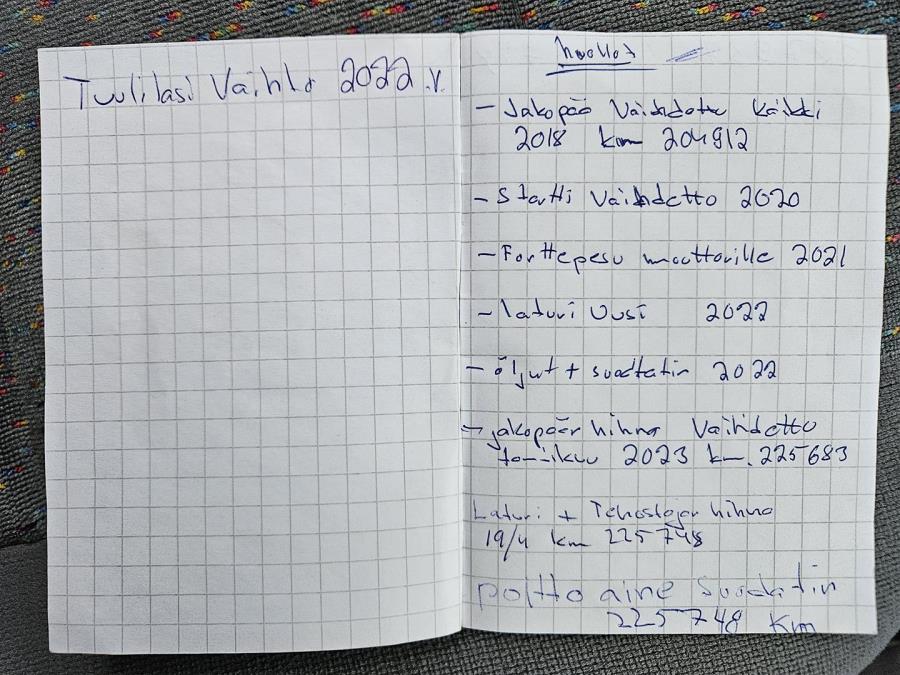 Tuulilasi Vaihto 2022 .v.
huollot
- Jakopää Vaihdettu kaikki
2018 km 204912
- Startti Vaihdettu 2020
- Forttepesu moottorille 2021
- laturi Uusi 2022
- öljyt + suodatin 2022
- jakopään hihna Vaihdettu
2023 km. 225683
Laturi + Tehostajan hihna
19/4 km 225748
poltto aine Suodatin
225748 km